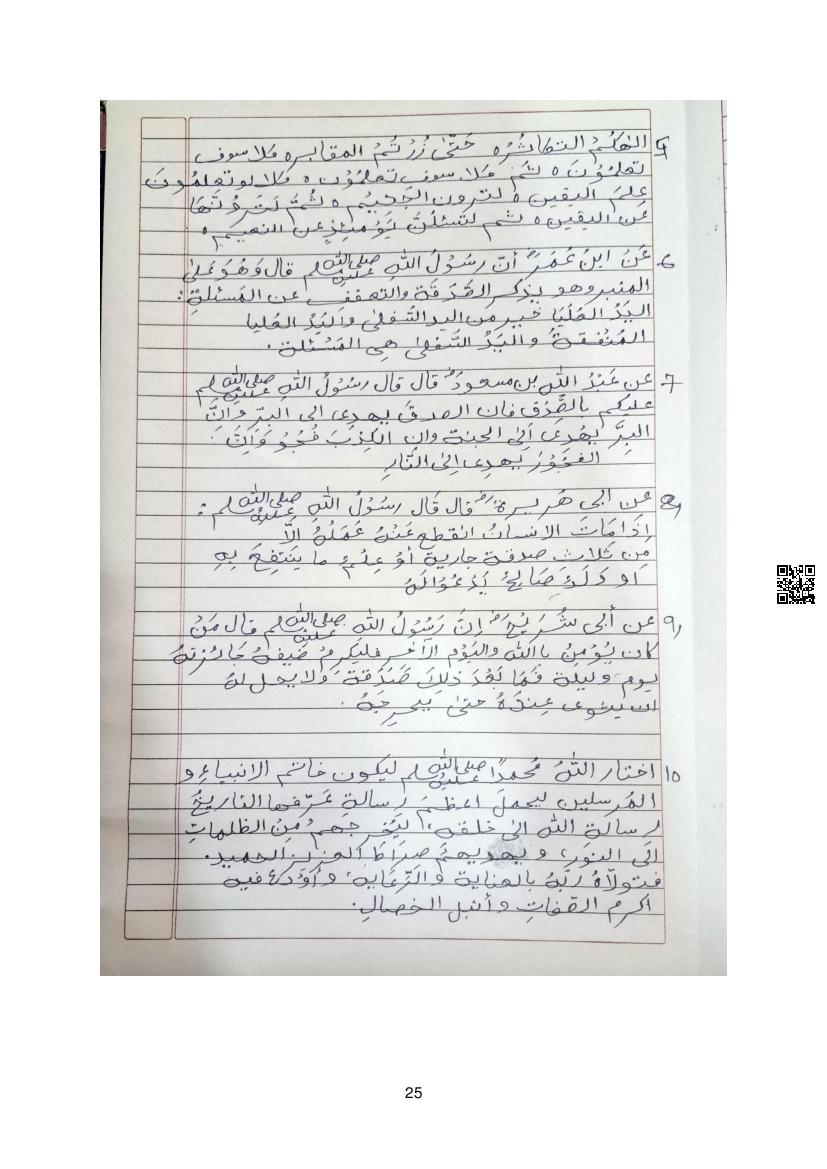 5 الهٰكُمُ التكاثُرُه حَتّىٰ زُرْتُمُ المقابره كلا سوف
تعلمُوْنَ ه ثمَّ كلا سوف تعلمُوْن ه كلا لو تعلمُونَ
عِلمَ اليقين ه لترون الجَحِيْمَ ه ثُمَّ لَتَرَوُنَّهَا
عَن اليقين ه ثم لتُسئلُنَّ يَوْمَئِذٍ عن النعيم ه
6- عَنُ ابنُ عُمَرَ ؓ أنّ رسُوْلُ اللهِ صلى الله عليه وسلم قال وَهُوَ عَلىٰ
المنبر وهو يذكر الصَّدَقَةَ والتعفف عن المَسئلةِ:
اليَدُ العُليَا خَيْر مَن اليد السُّفلىٰ وَاليَدُ العُليا
المُنْفِقةُ واليَدُ السُّفلىٰ هِى المَسْئلة.
7- عن عَبْدُ اللهِ بن مسعودَ ؓ قال قال رسُوْلُ اللهِ صلى الله عليه وسلم
عليكم بِالصِّدْق فان الصدقَ يهدى الى البرّ وَانَّ
البِرَّ يهْدَى اَلِى الجنة وان الكِذبَ فُجُو وَاِنَّ
الفجُوْرَ يَهدِى اِلىٰ النَّارِ
8, عن ابى هُريرة ؓ قال قَال رسُوْلُ اللهِ صلى الله عليه وسلم:
اِذَامَاتَ الانسانُ انقطع عَنْهُ عَمَلُهُ اِلاَّ
مِن ثلاثٍ صدقة جارية أوُ عِلمُ ما يَنتفِعَ بِهِ
او وَلَدُ صَالِحُ يَدْعُوْالَهُ
9, عن أبى شُرَيْح ؓ اِنّ رَسُوْلُ اللهِ صلى الله عليه وسلم قال مَنُ
كان يُؤمِنُ باالله واليَوْمِ الآخر فليكرِمُ ضيفهُ جَائزتهُ
يوم وليلة فَمَا بَعْدَ ذلِكَ صَدَقة وَلا يحل لهُ
ان يثوى عِندَهُ حتىٰ يحرِجَهُ.
10 اختار اللهُ مُحمدًا صلى الله عليه وسلم ليكون خاتم الانبياءِ و
المُرسلين ليحملَ اعظمَ رسالةٍ عَرّفها التاريخُ
رسالة الله الىٰ خلقهِ، ليُخرجهمُ مِنَ الظلماتِ
الَى النورَ، ويهديهمُ صِراطَ العزيز الحميدِ.
فتولاَّهُ رَبَّهُ بالعنايةِ والرِّعَايةِ، وأوْدَعَ فيهِ
اكرمُ الصّفاتِ وأنبل الخصالِ.
25